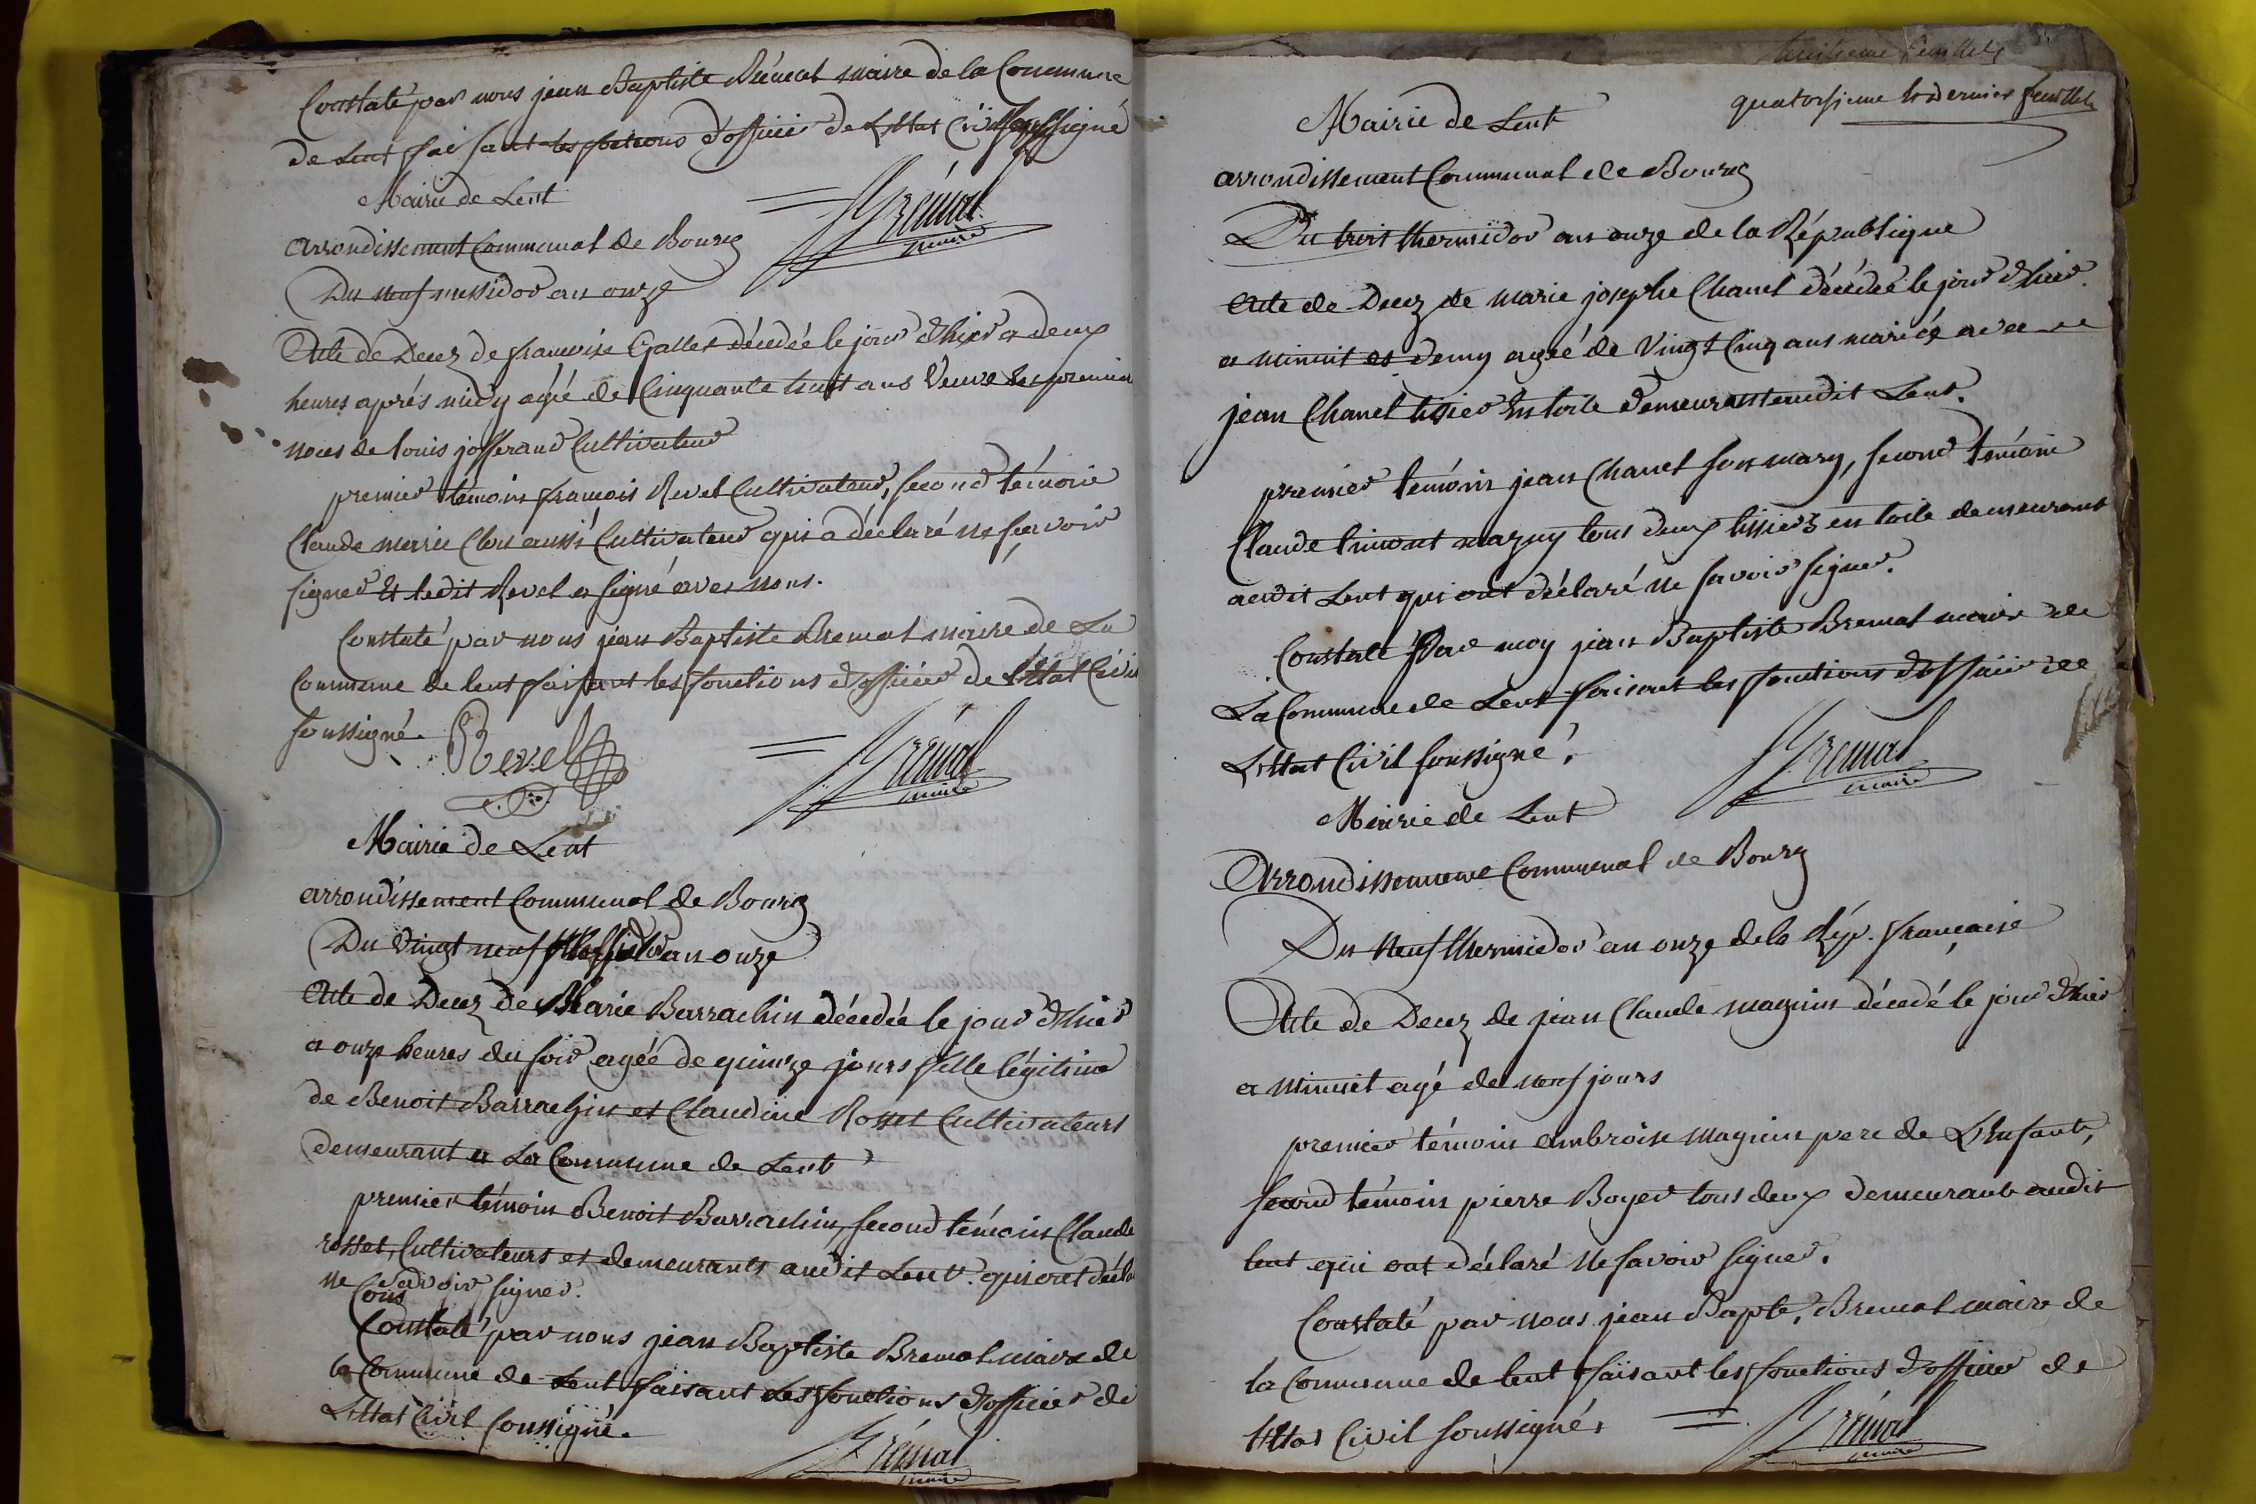 Constaté par nous jean Baptiste Brémal maire de la Commune
de Lent faisant les fonctions d'officier de L'Etat Civil soussigné
Brémal
maire
Mairie de Lent
arrondissement Communal de Bourg
Du neuf messidor an onze
Acte de Decez de françoise Gallet décedée le jour d'hier a deux
heures aprés midy agée de Cinquante huit ans Veuve en premier
noces de louis josserand Cultivateur
premier témoin françois Revel Cultivateur, second témoin
Claude marie Clou aussi Cultivateur qui a déclaré ne sçavoir
signer et ledit Revel a signé avec nous.
Constaté par nous jean Baptiste Bremal maire de La
Commune de lent faisant les fonctions d'officier de l'Etat Civil
soussigné.
Revel
Brémal
maire
Mairie de Lent
arrondissement Communal de Bourg
Du Vingt neuf Messidor an onze
Acte de Decez de Marie Barrachin décedée le jour d'hier
a onze heures du soir agée de quinze jours fille légitime
de Benoit Barrachin et Claudine Rosset Cultivateurs
demeurant a La Commune de Lent
premier témoin Benoit Barrachin, second témoin Claude
rosset, Cultivateurs et demeurants audit Lent. qui ont décla
ne savoir signer.
Cons
Constaté par nous jean Baptiste Bremal maire de
la Commune de Lent faisant Les fonctions d'officier de
L'Etat Civil soussigné.
Brémal
maire
feuillet
quatorsieme et dernier feuillet
Mairie de Lent
arrondissement Communal de Bourg
Du trois thermidor an onze de la République
Acte de Decez de marie josephe Chanel décédée le jour d'hier
a minuit et demy agée de Vingt Cinq ans mariée avec
jean Chanel tissier En toile demeurant audit Lent.
premier temoin jean Chanel son mary, second témoin
Claude magny tous deux tissiers en toile demeurant
audit Lent qui ont déclaré ne savoir signer.
Constaté Par moy jean Baptiste Bremal maire de
La Commune de Lent faisant les fonctions d'officier de
L'Etat Civil soussigné.
Brémal
maire
Mairie de Lent
Arrondissement Communal de Bourg
Du Neuf thermidor an onze de la Rép. française
Acte de Decez de jean Claude magnin décedé le jour d'hier
a minuit agé de neuf jours
premier témoin ambroise magnin pere de L'Enfant,
second témoin pierre Boyer tous deux demeurant audit
lent qui ont déclaré Ne savoir signer.
Constaté par nous jean Bapte. Bremal maire de
la Commune de lent faisant les fonctions d'officier de
l'Etat Civil soussigné.
Brémal
maire